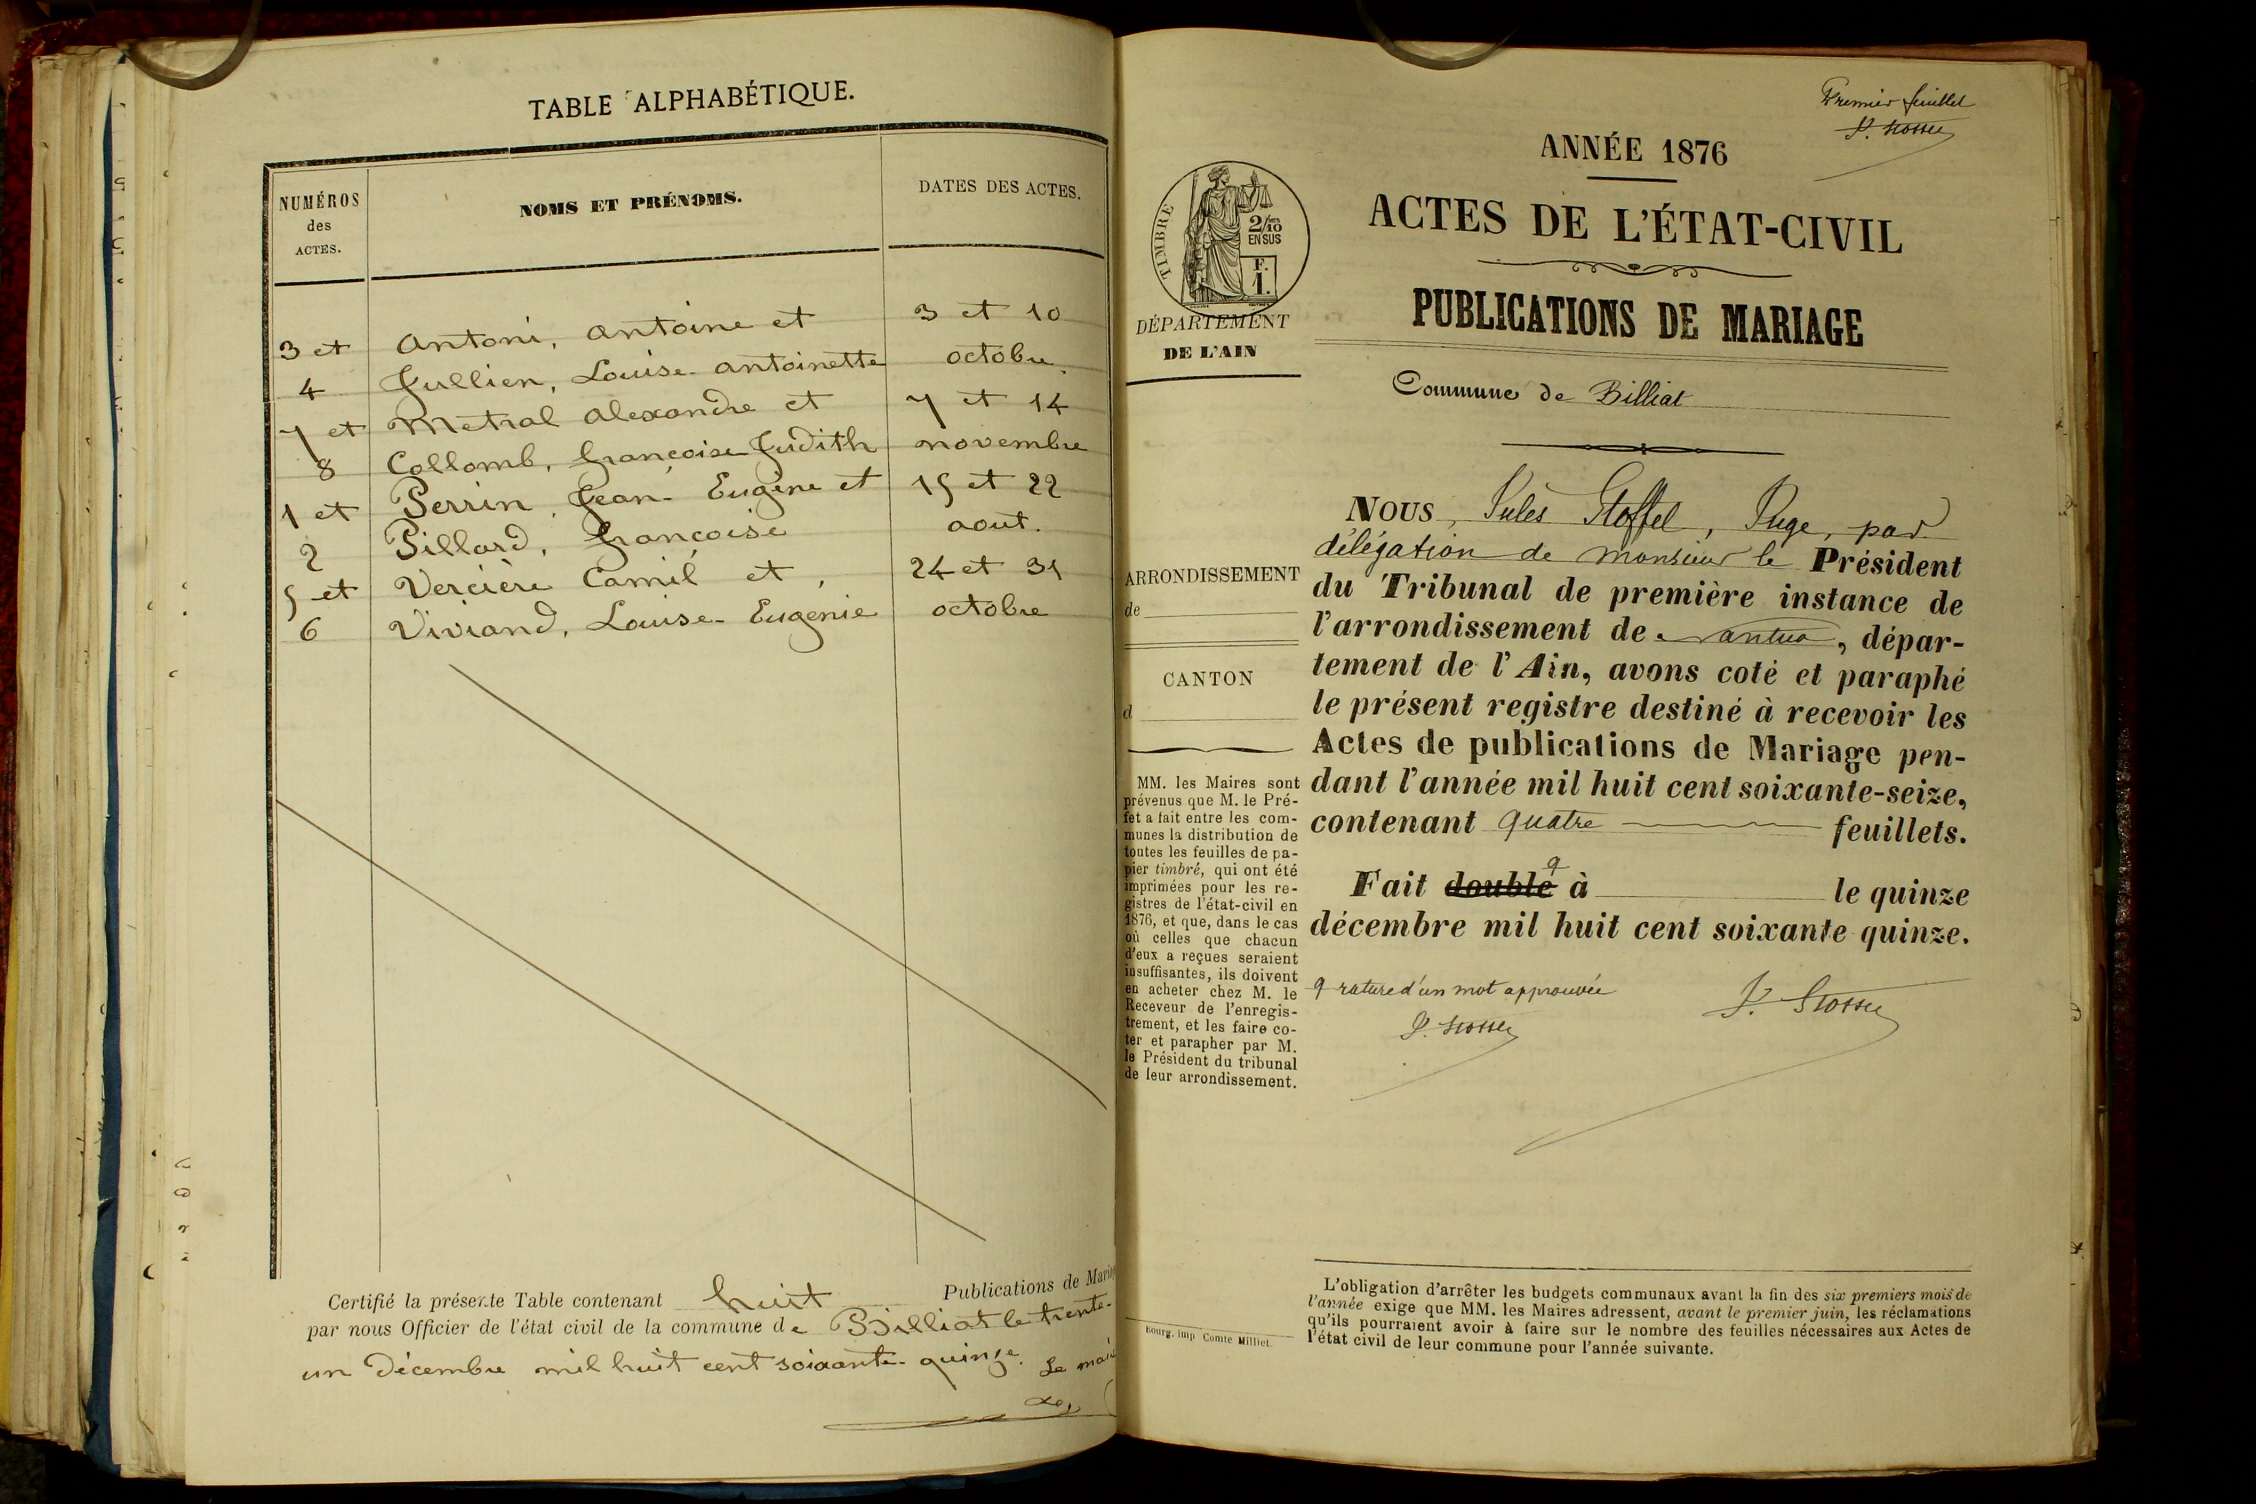 TABLE ALPHABÉTIQUE.
NUMÉROS
des
ACTES.
NOMS ET PRÉNOMS.
DATES DES ACTES.
3 et Antoni, Antoine et 3 et 10
4 Jullien, Louise-Antoinette octobre.
7 et Metral Alexandre et 7 et 14
8 Collomb, Françoise Judith novembre
1 et Perrin, Jean-Eugène et 15 et 22
2 Pillard, Françoise aout.
5 et Vercière Camil et, 24 et 31
6 Viviand, Louise-Eugénie octobre
Certifié la présente Table contenant huit Publications de Mariag
par nous Officier de l'état civil de la commune de Billiat le trente-
un Décembre mil huit cent soixante-quinze. Le mai
Premier feuillet
ANNÉE 1876
ACTES DE L'ÉTAT-CIVIL
PUBLICATIONS DE MARIAGE
TIMBRE
2/10
EN SUS
F.
1.
DÉPARTEMENT
DE L'AIN
Commune de Billiat
ARRONDISSEMENT
de
CANTON
d
MM. les Maires sont
prévenus que M. le Pré-
fet a fait entre les com-
munes la distribution de
toutes les feuilles de pa-
pier timbré, qui ont été
imprimées pour les re-
gistres de l'état-civil en
1876, et que, dans le cas
où celles que chacun
d'eux a reçues seraient
insuffisantes, ils doivent
en acheter chez M. le
Receveur de l'enregis-
trement, et les faire co-
ter et parapher par M.
le Président du tribunal
de leur arrondissement.
Bourg, imp Comte Milliet.
NOUS, Jules Stoffel, Juge, par
délégation de monsieur le Président
du Tribunal de première instance de
l'arrondissement de Nantua, dépar-
tement de l'Ain, avons coté et paraphé
le présent registre destiné à recevoir les
Actes de publications de Mariage pen-
dant l'année mil huit cent soixante-seize,
contenant quatre feuillets.
Fait double à le quinze
décembre mil huit cent soixante quinze.
rature d'un mot approuvée
L'obligation d'arrêter les budgets communaux avant la fin des six premiers mois de
l'année exige que MM. les Maires adressent, avant le premier juin, les réclamations
qu'ils pourraient avoir à faire sur le nombre des feuilles nécessaires aux Actes de
l'état civil de leur commune pour l'année suivante.